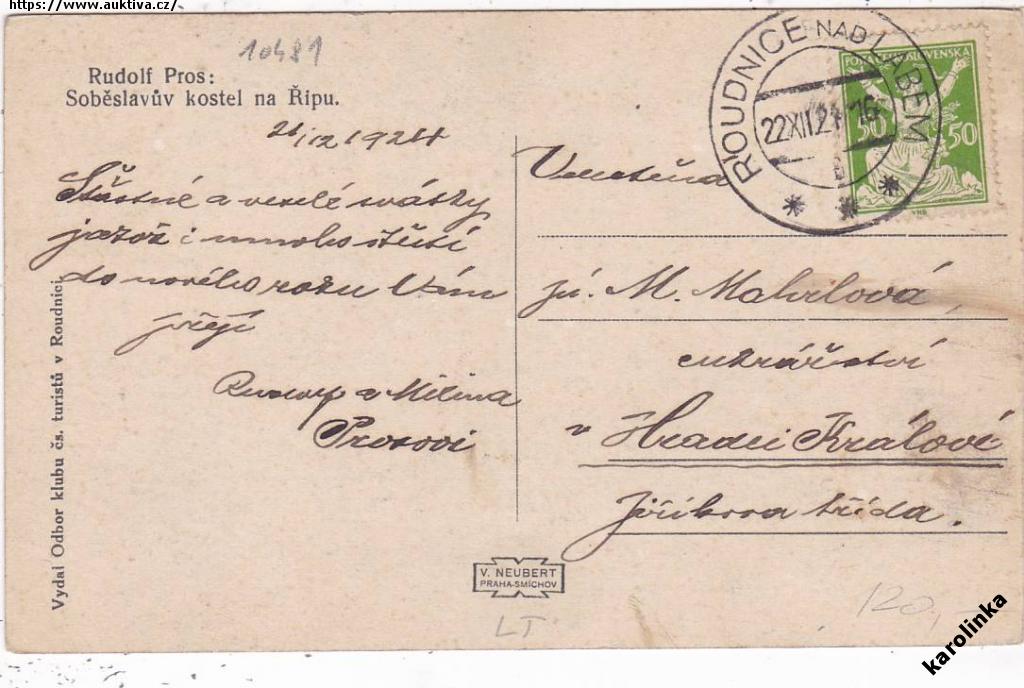 https://www.auktiva.cz/
10481
Rudolf Pros:
Soběslavův kostel na Řípu.
21/12 1924
Šťastné a veselé svátky
jakož i mnoho štěstí
do nového roku Vám
přejí
Rudolf a Milina
Prosovi
Vydal Odbor klubu čs. turistů v Roudnici
V. NEUBERT
PRAHA-SMÍCHOV
LT
ROUDNICE NAD LABEM
22 XII 24 16
POŠTA ČESKOSLOVENSKA
50 50
Velectěná
pí. M. Mahrlová,
cukrářství
v Hradci Králové
Jiříkova třída.
120,-
karolinka